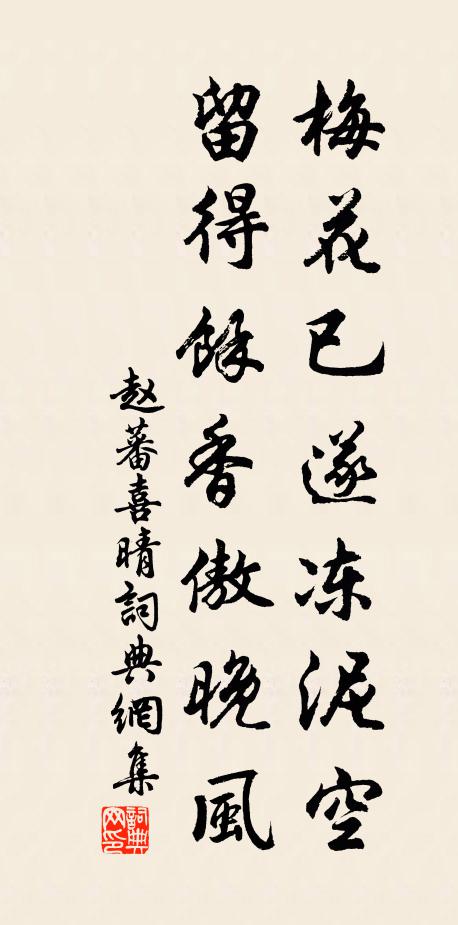 梅花已遂冻泥空
留得餘香傲晚風
赵蕃喜晴詞典網集
詞典网印